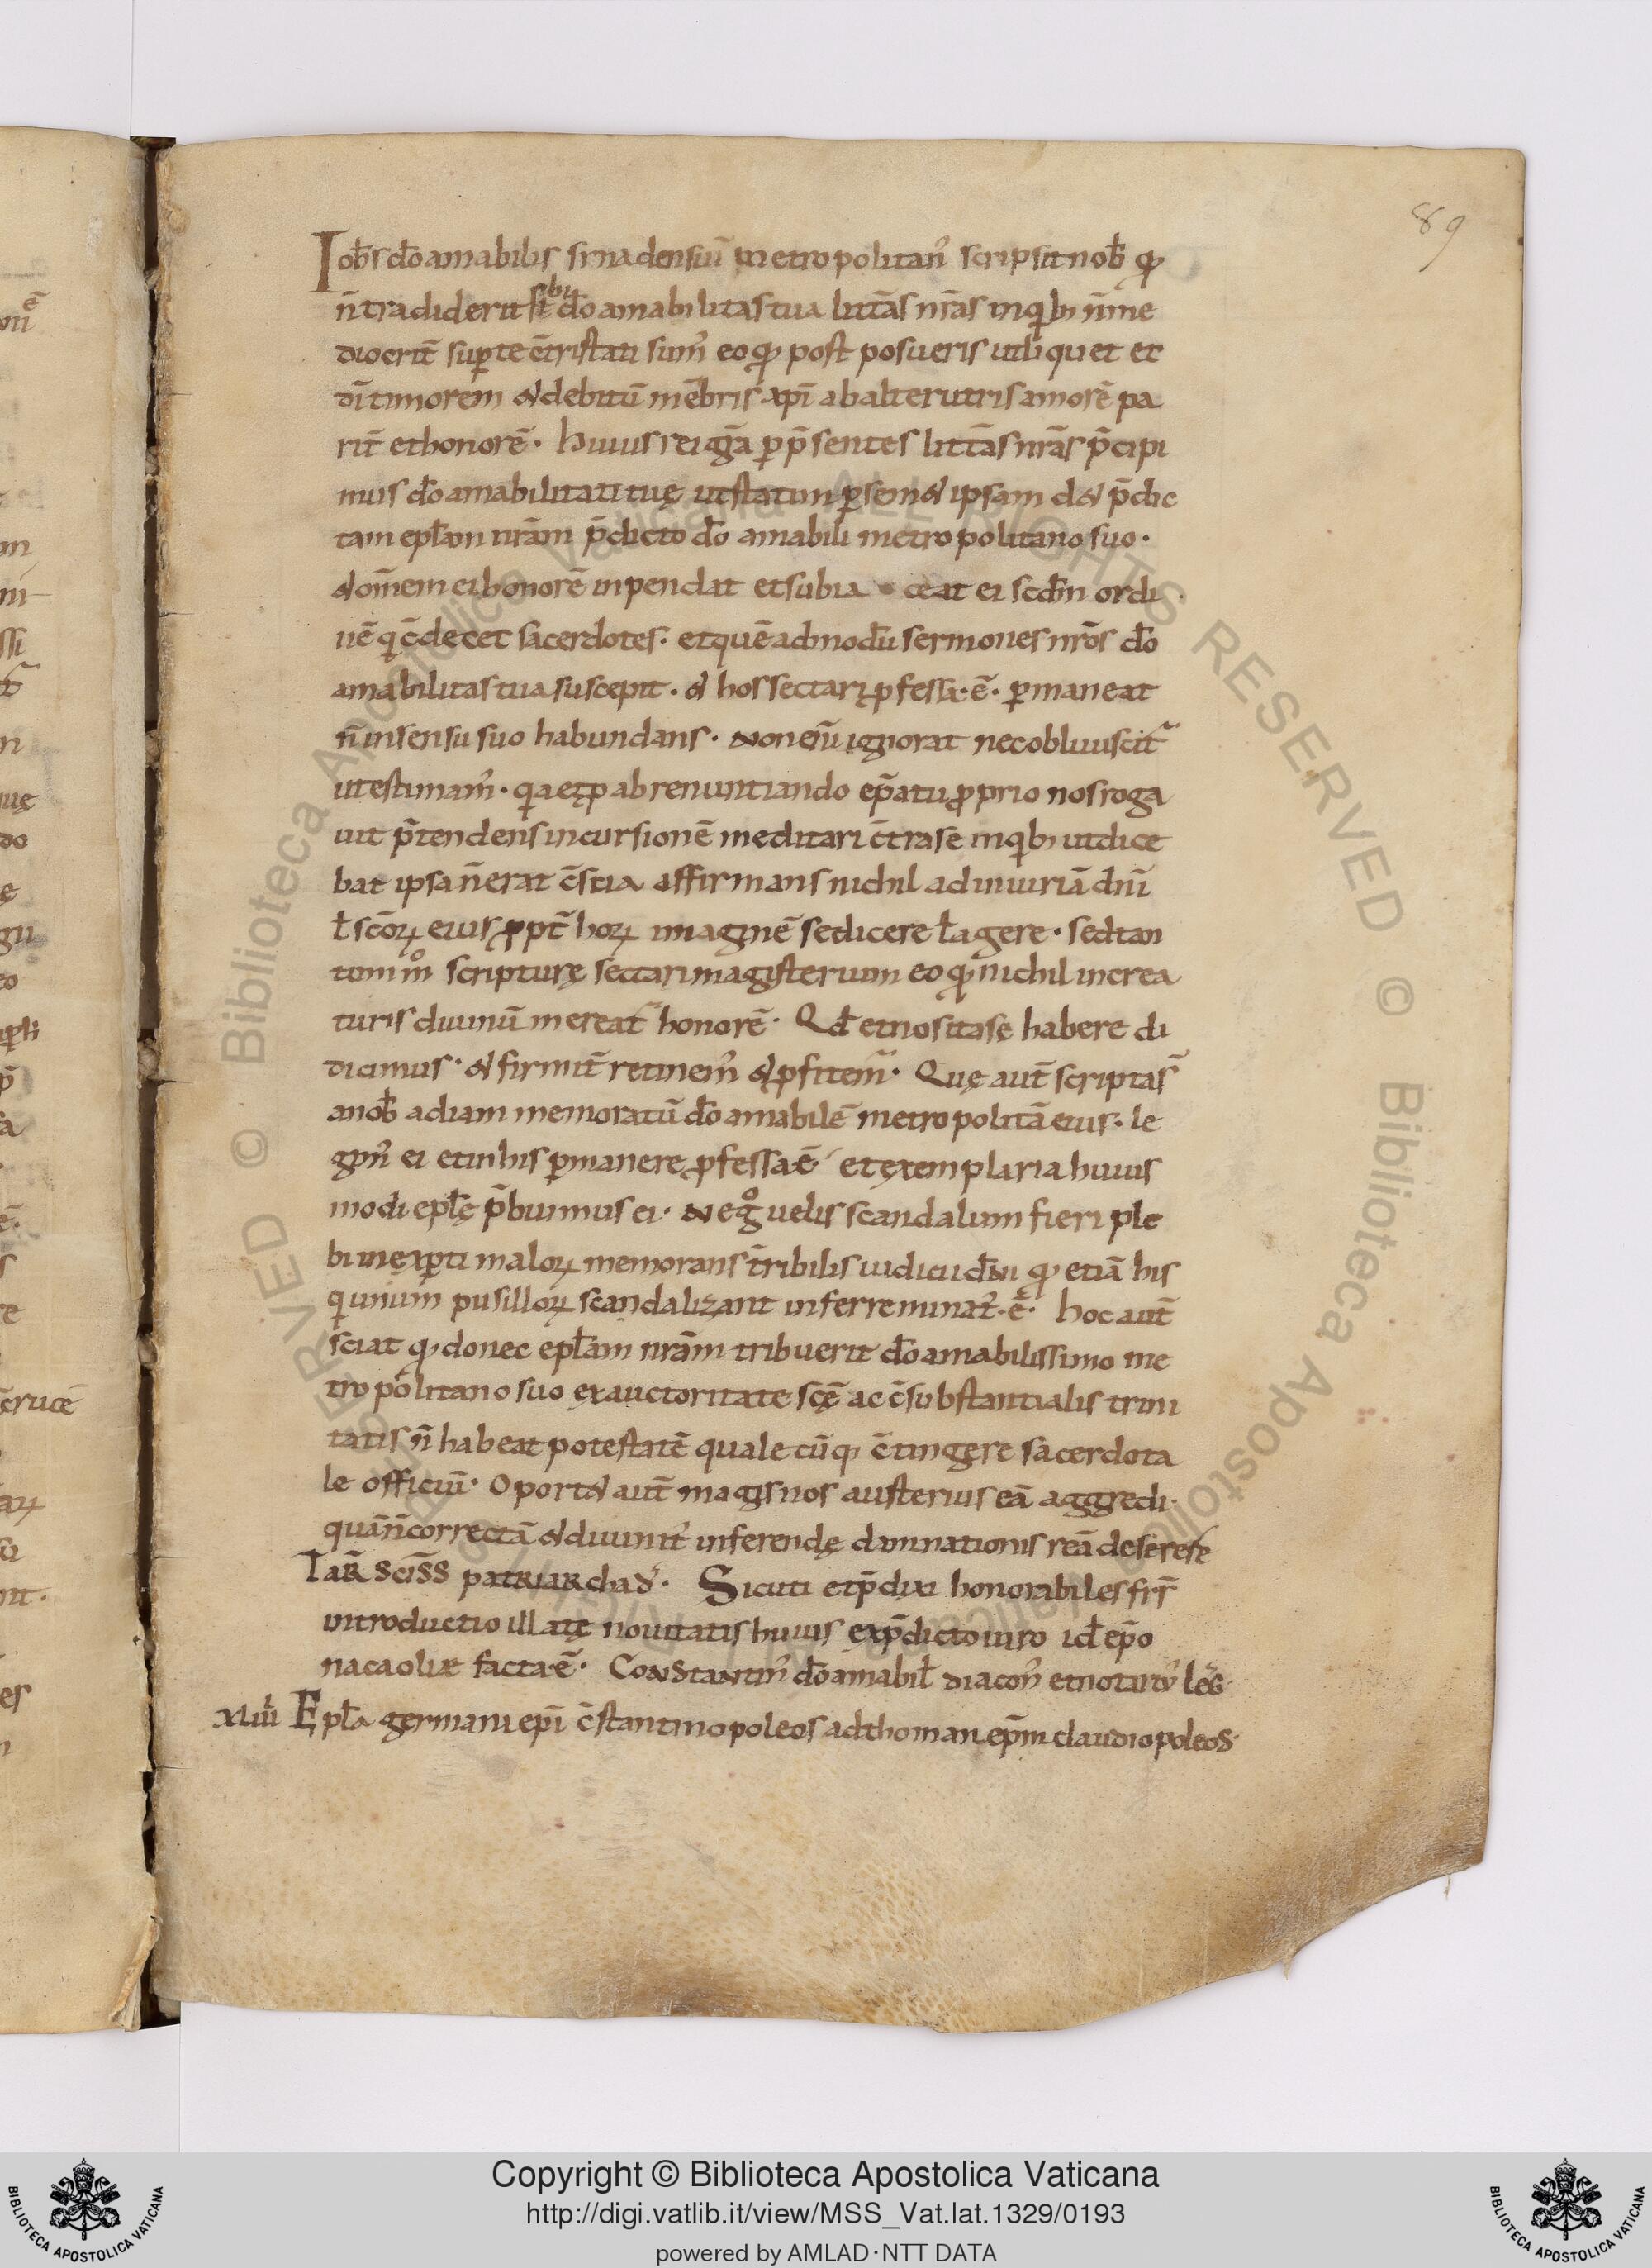 89
Iohs do amabilis sinadensiū metropolitan᾿ scripsit nob̄ qđ
n̄ tradiderit sibi do amabilitas tua litt̄as nr̄as in qbus n̄ me
diocrit̄ sup te ētristati sum᾿ eo qđ postposueris utliquet et
dī timorem & debitū mēbris xpī ab alterutris amorē pa
rit̄ et honorē. huius rei gr̄a p p̄sentes litt̄as nr̄as p̄cipi
mus do amabilitati tuę ut statim p sem& ipsam d& p̄dic
tam epl̄am nr̄am p̄dicto do amabili metropolitano suo.
& om̄em ei honorē inpendat et subia ceat ei scd̄m ordi
nē q c̄decet sacerdotes. et quē admodū sermones nr̄os do
amabilitas tua suscepit. & hos sectari pfessa. ē. pmaneat
n̄ in sensu suo habundans. Non enī ignorat nec obliuiscit᾿
ut estimam᾿. qa et p abrenuntiando ep̄atu pprio nos roga
uit p̄tendens incursionē meditari c̄tra se in qbus ut dice
bat ipsa n̄ erat c̄scia affirmans nichil ad iniuriā dn̄i
l̄ scō℞ eius ppt̄ ho℞ imaginē se dicere l̄ agere. sed tan
tom̊ scripturę sectari magisterium eo qđ nichil in crea
turis diuinū mereat᾿ honorē. Qđ et nos ita se habere di
dicimus. & firmit̄ retinem᾿ & pfitem᾿. Quę aut̄ scripta s̄
a nob̄ ad iam memoratū do amabilē metropolitā eius. le
gim᾿ ei et in his pmanere pfessa ē. et exemplaria huius
modi epl̄ę p̄buimus ei. Ne g̊ uelis scandalum fieri ple
bi inexpti malo℞ memorans t̄ribilis iudicii dn̄i qđ etiā his
qui unum pusillo℞ scandalizant inferre minat᾿. ē. Hoc aut̄
sciat qđ donec epl̄am nr̄am tribuerit do amabilissimo me
tropolitano suo ex auctoritate scę̄ ac c̄substantialis trini
tatis n̄ habeat potestatē quale cūq; c̄tingere sacerdota
le officiū. Oport& aut̄ magis nos austerius eā aggredi.
quā n̄ correctā & diuinit᾿ inferendę damnationis reā deserere
Tar̄ sciss̄ patriarcha d̄. Sicuti et p̄dixi honorabiles frs̄
introductio illatę nouitatis huius ex p̄dicto uiro id̄ epō
nacaoliae facta ē. Constantin᾿ do amabil̄ diacon᾿ et notari᾿ leḡ.
xliiii Epl̄a germani epī c̄stantinopoleos ad thoman epm̄ claudiopoleos.
© Biblioteca Apostolica Vaticana ALL RIGHTS RESERVED
Copyright © Biblioteca Apostolica Vaticana
http://digi.vatlib.it/view/MSS_Vat.lat.1329/0193
powered by AMLAD·NTT DATA
BIBLIOTECA APOSTOLICA VATICANA
BIBLIOTECA APOSTOLICA VATICANA